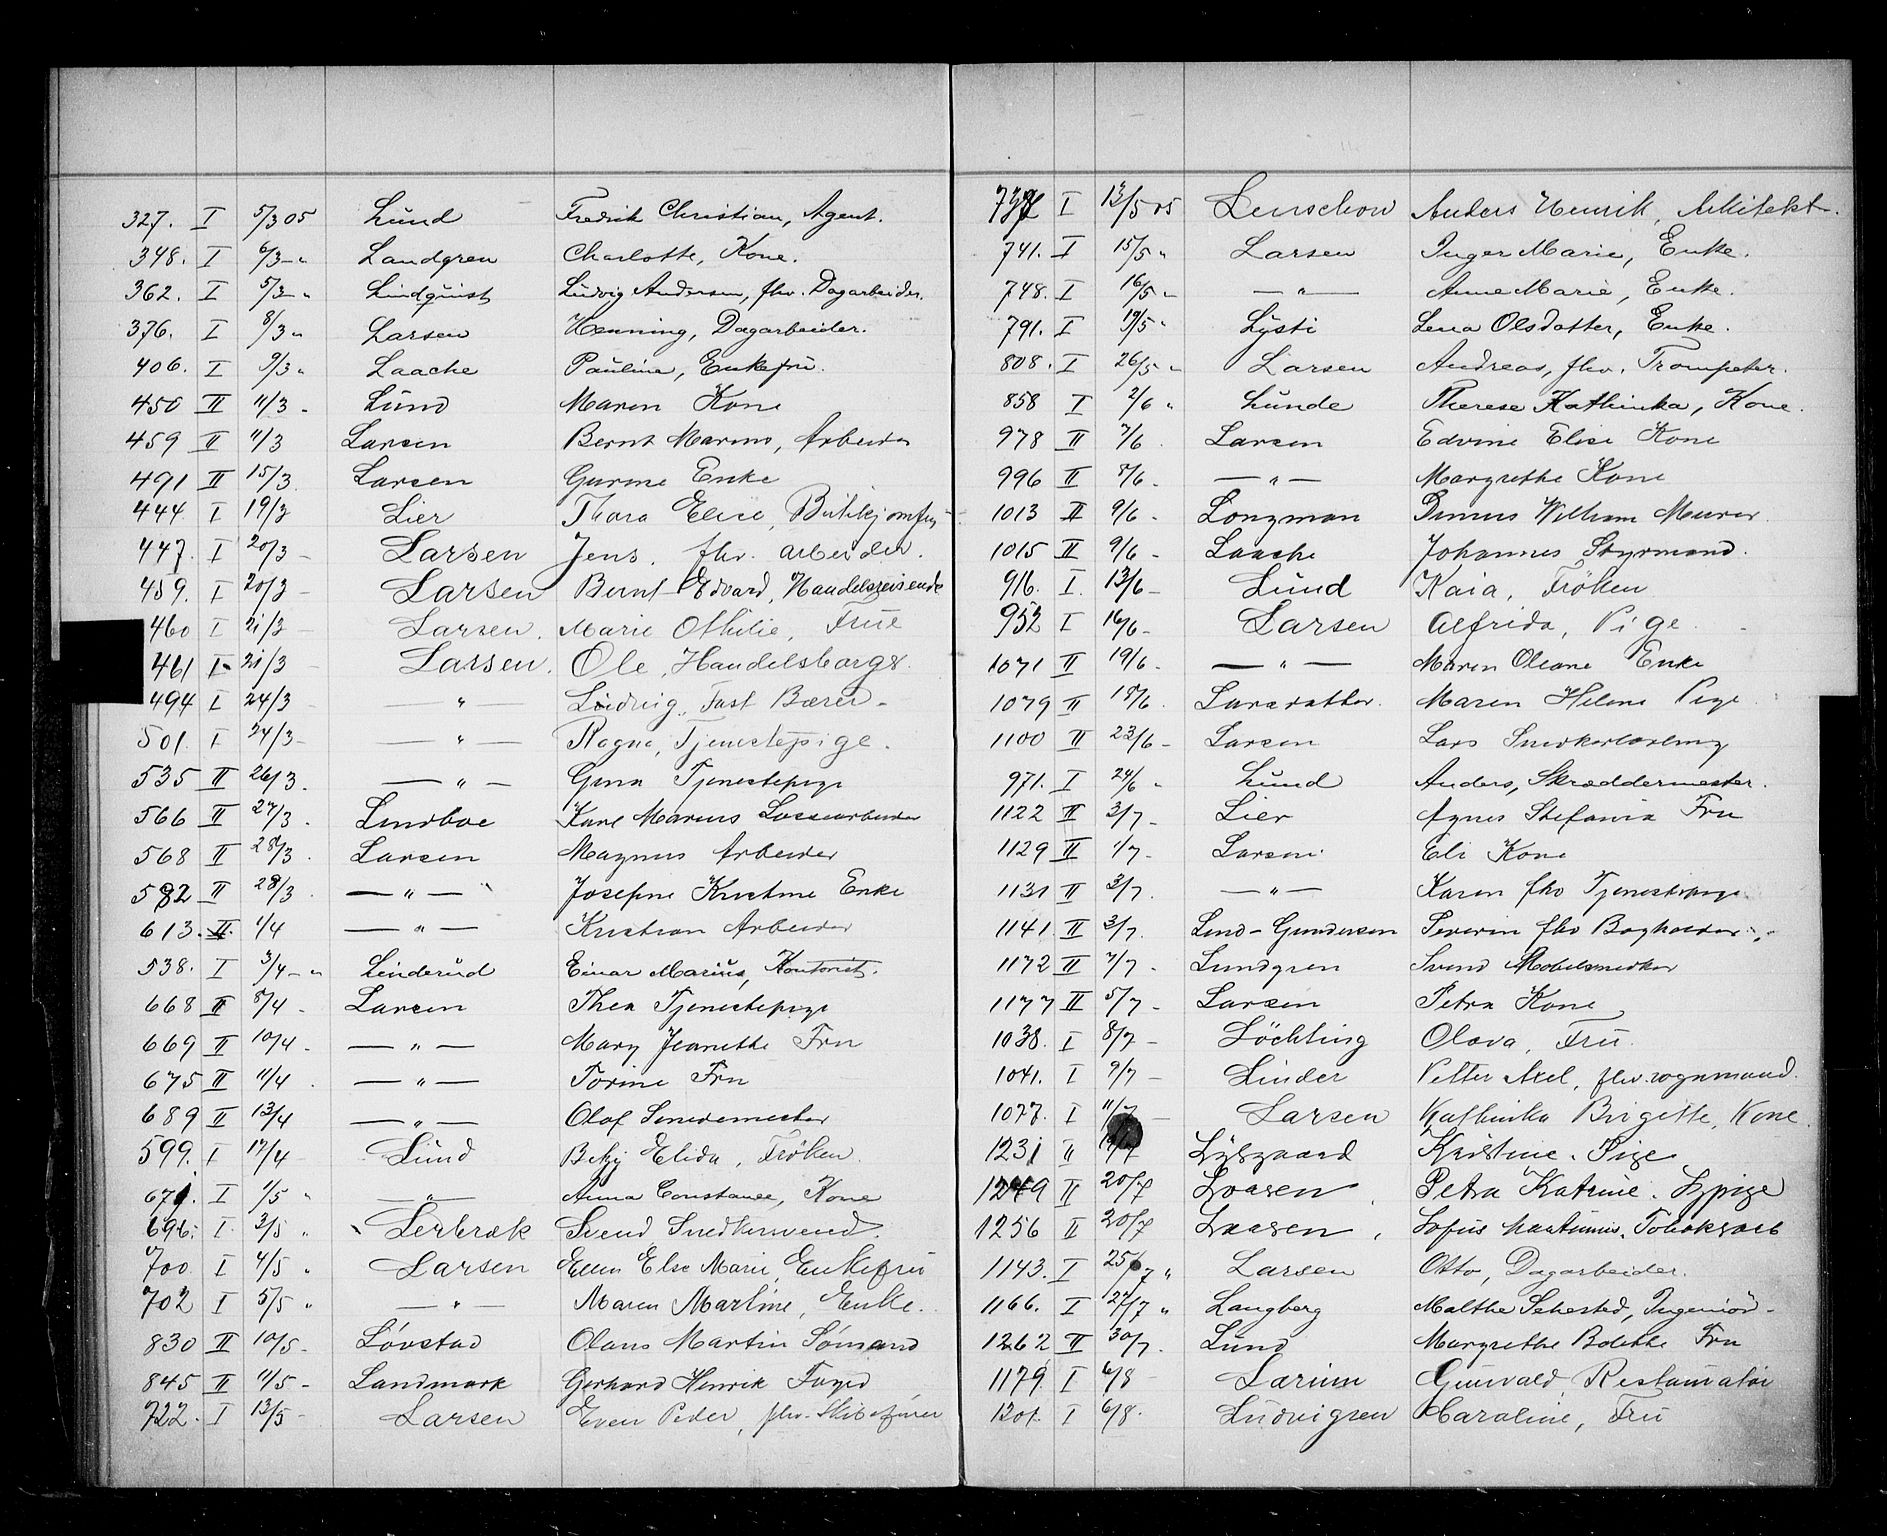 327. I 5/3 05 Lund Fredrik Christian, Agent.
348. I 6/3 - " Landgren Charlotte, Kone.
362. I 5/3 - " Lindquist Ludvig Andersen, fhv. Dagarbeider.
376. I 8/3 " Larsen Henning, Dagarbeider.
406. I 9/3 " Laache Pauline, Enkefru.
450 II 11/3 - Lund Maren Kone
459 II 11/3 Larsen Bernt Marius, Arbeider
491 II 15/3 Larsen Gurine Enke
444 I 19/3 Lier Thora Elise, Butikjomfru
447. I 20/3 - Larsen Jens, fhv. arbeider.
459. I 20/3 - Larsen Bernt Edvard, Handelsreisende
460 I 21/3 - Larsen. Marie Othilie, Frue
461 I 21/3 - Larsen. Ole, Handelsborger.
494 I 24/3 — " — Ludvig, Fast Bærer -
501. I 24/3 - — " — Ragna, Tjenestepige.
535 II 26/3. — " — Gina Tjenestepige
566 II 27/3. Lindboe Karl Marius Lossearbeider
568 II 28/3. Larsen Magnus Arbeider
582 II 28/3. — " — Josefine Kristine Enke
613. II. 1/4 — " — Kristian Arbeider
538. I 3/4 - " Linderud Einar Marius, Kontorist.
668 II 8/4 - Larsen Thea Tjenestepige
669 II 10/4 - — " — Mary Jeanette Fru
675 II 11/4 . — " — Torine Fru
689 II 13/4 — " — Olaf Smedemester
599. I 17/4 - Lund Betzy Elida, Frøken.
671. I 1/5 " — " — Anna Constanse, Kone
696. I. 3/5 " Lerbræk Svend Snedkersvend.
700 I 4/5 " Larsen Ellen Else Marie, Enkefru
702 I 5/5 " — " — Maren Martine, Enke.
830 II 10/5 - Løvstad Olaus Martin Sømand
845 II 11/5 - Landmark Gerhard Henrik Foged
722. I 13/5 - Larsen Even Peder, fhv. Skibsfører
I 13/5 05 Lenschow Anders Henrik, Arkitekt.
741. I 15/5 " Larsen Inger Marie, Enke.
748. I 16/5 " — " — Anne Marie, Enke.
791. I 19/5 " Lysti Lena Olsdatter, Enke.
808. I 26/5 " Larsen Andreas, fhv. Trompeter.
858 I 2/6 " Lunde Therese Kathinka, Kone.
978 II 7/6. Larsen Edvine Elise Kone
996 II 8/6. — " — Margrethe Kone
1013 II 9/6 - Longman William Murer
1015 II 9/6 - Laache Johannes Styrmand.
916. I. 13/6 - Lund Kaia, Frøken
952 I 16/6 - Larsen Alfrida, Pige.
1071 II 19/6 - — " — Maren Oleane Enke
1079 II 18/6. Larsdatter. Maren Helene Pige
1100 II 23/6 - Larsen Lars Snedkerlærling
971. I 24/6 " Lund Anders, Skræddermester.
1122 II 3/7 - Lier Agnes Stefania Fru
1129 II 1/7 - Larsen Eli Kone
1131 II 3/7. — " — Karen fhv Tjenestepige
1141. II 3/7. Lind-Gundersen Severin fhv Bogholder
1172 II 7/7 - Lundgren Svend Møbelsnedker
1177 II 5/7 - Larsen Petra Kone
1038. I 8/7 - Løchting Olava, Fru.
1041. I 9/7 - Linder Petter Axel, fhv. vognmand.
1077. I 11/7 - Larsen Kathinka Birgitte, Kone.
1231 II Lysgaard Kristine. Pige
1249 II 20/7 Laasen. Petra Katrine. Sypige
1256 II 20/7 Laasen. Sofus Martinius.
1143. I 25/7 " Larsen Otto, Dagarbeider.
1166. I 27/7 " Langberg Malthe Sehested, Ingeniør -
1262 II 30/7. Lund Margrethe Bolette Fru
1179 I 6/8 - Larium Gunvald Restauratør
1201. I 6/8. Ludvigsen Caroline, Fru